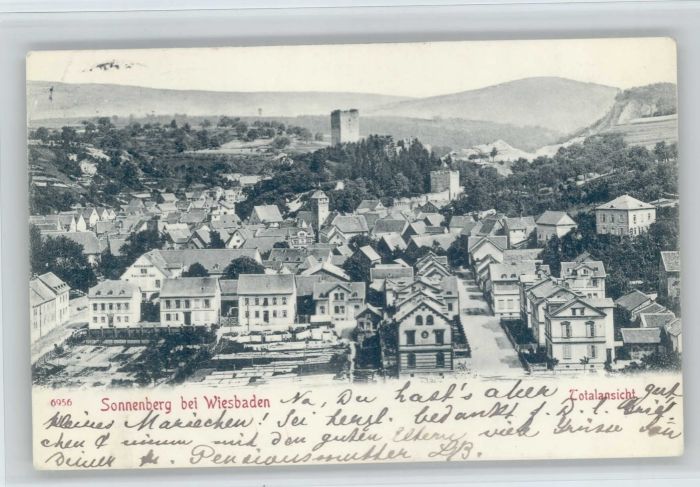 6956 Sonnenberg bei Wiesbaden Totalansicht
Na, Du hast's aber gut,
kleines Mariechen! Sei herzl. bedankt f. D. l. Brief
chen & nimm mit den guten Eltern viele Grüsse von
Deiner Pensionsmutter